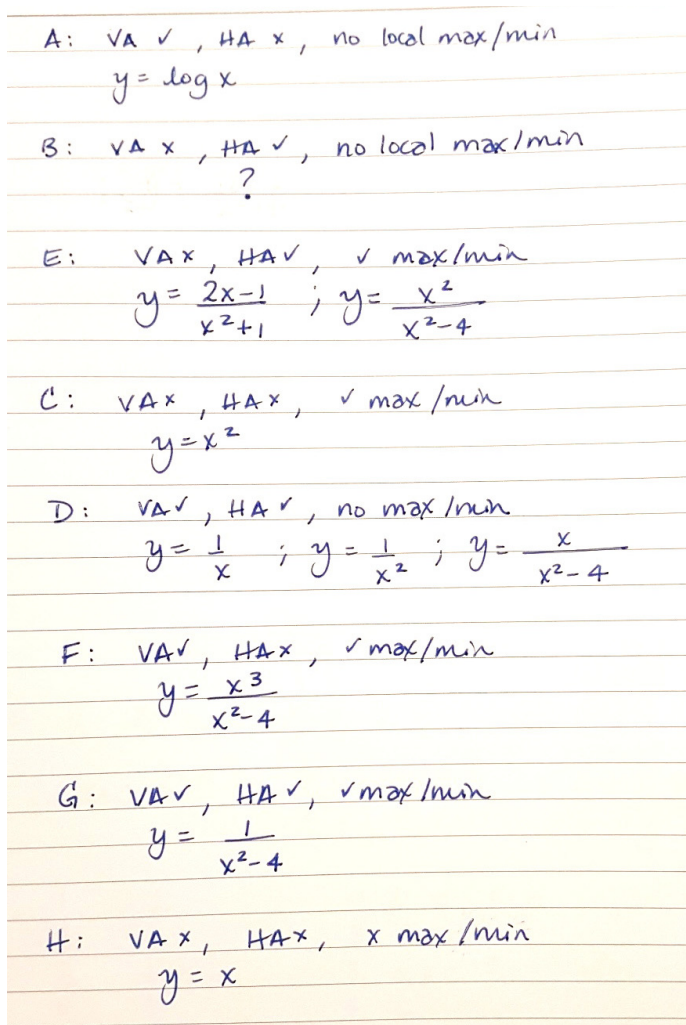 A: VA ✓, HA x, no local max/min
y = log x
B: VA x, HA ✓, no local max/min
?
E: VA x, HA ✓, ✓ max/min
y = (2x-1)/(x²+1) ; y = x²/(x²-4)
C: VA x, HA x, ✓ max/min
y = x²
D: VA ✓, HA ✓, no max/min
y = 1/x ; y = 1/x² ; y = x/(x²-4)
F: VA ✓, HA x, ✓ max/min
y = x³/(x²-4)
G: VA ✓, HA ✓, ✓ max/min
y = 1/(x²-4)
H: VA x, HA x, x max/min
y = x